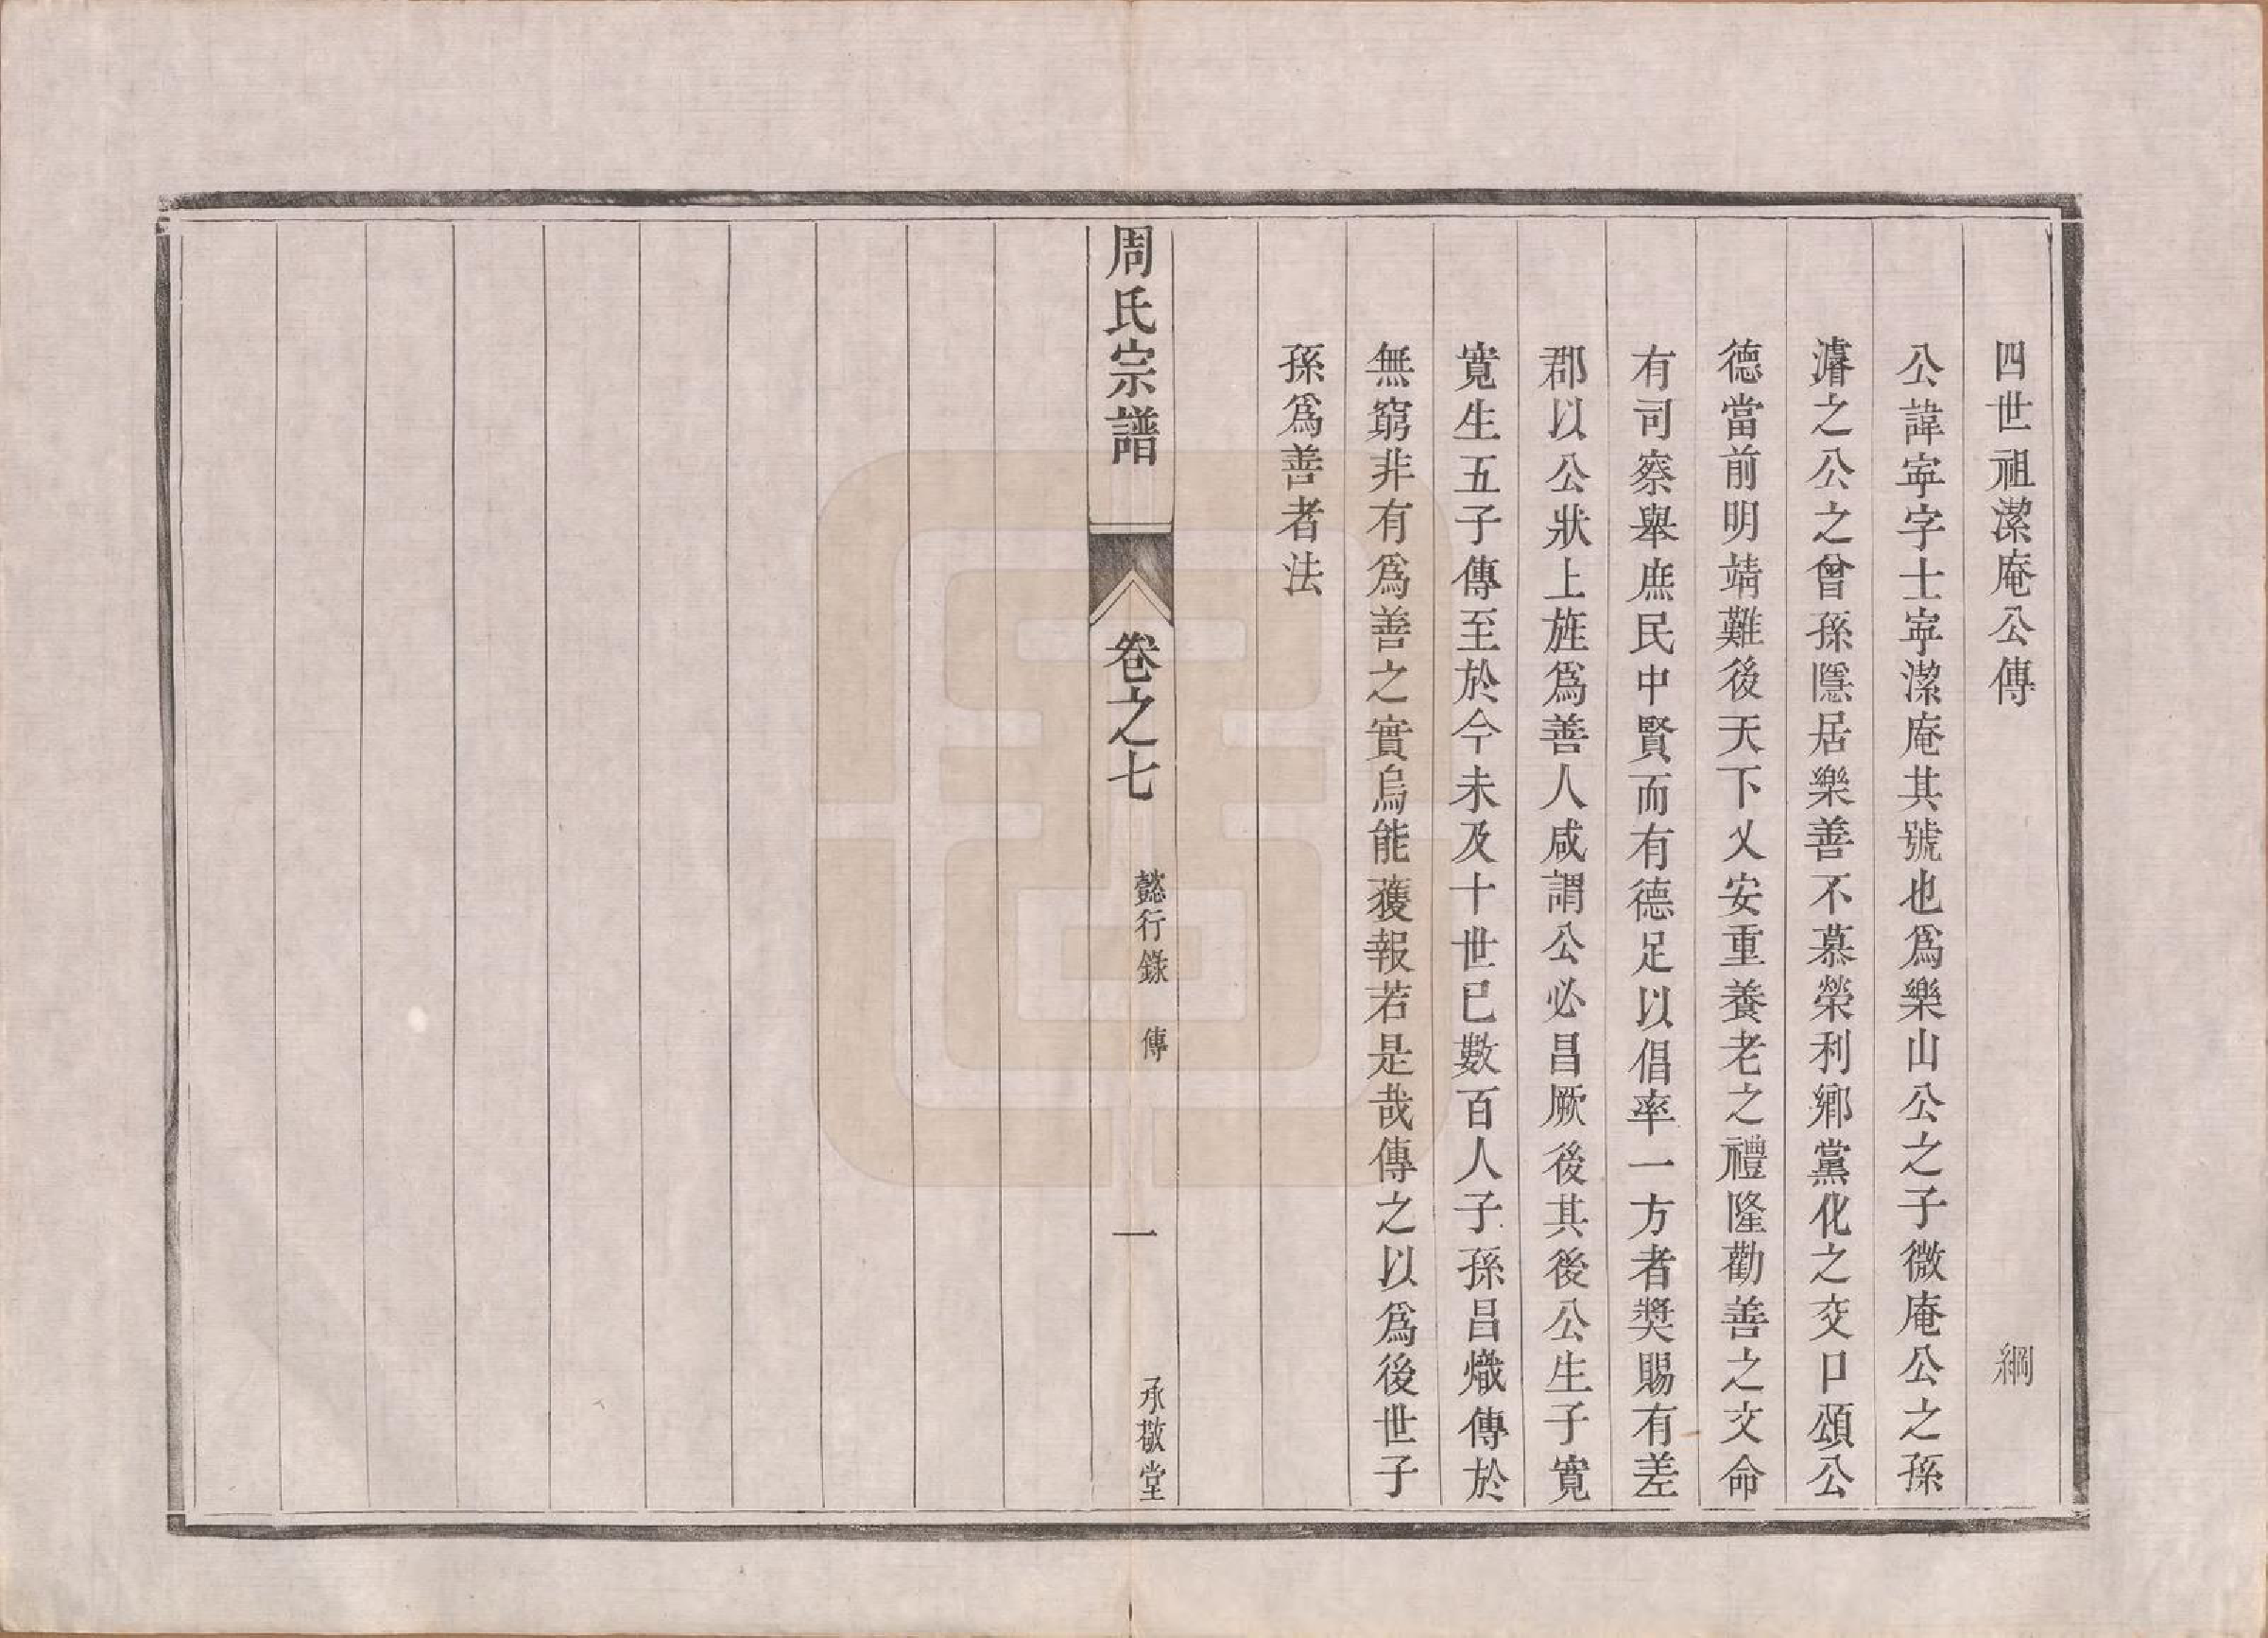 四世祖潔庵公傳　綱
公諱寍字士寍潔庵其號也爲樂山公之子微庵公之孫
濬之公之曾孫隱居樂善不慕榮利鄉黨化之交口頌公
德當前明靖難後天下乂安重養老之禮隆勸善之文命
有司察舉庶民中賢而有德足以倡率一方者奬賜有差
郡以公狀上旌爲善人咸謂公必昌厥後其後公生子寛
寛生五子傳至於今未及十世已數百人子孫昌熾傳於
無窮非有爲善之實烏能獲報若是哉傳之以爲後世子
孫爲善者法
周氏宗譜　卷之七　懿行錄　傳　一　承敬堂